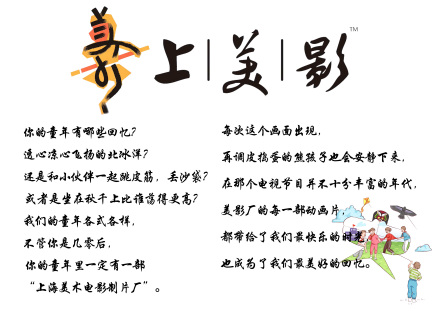 上|美|影™
你的童年有哪些回忆?
透心凉心飞扬的北冰洋?
还是和小伙伴一起跳皮筋,丢沙袋?
或者是坐在秋千上比谁荡得更高?
我们的童年各式各样,
不管你是几零后,
你的童年里一定有一部
“上海美术电影制片厂”。
每次这个画面出现,
再调皮捣蛋的熊孩子也会安静下来,
在那个电视节目并不十分丰富的年代,
美影厂的每一部动画片,
都带给了我们最快乐的时光
也成为了我们最美好的回忆。